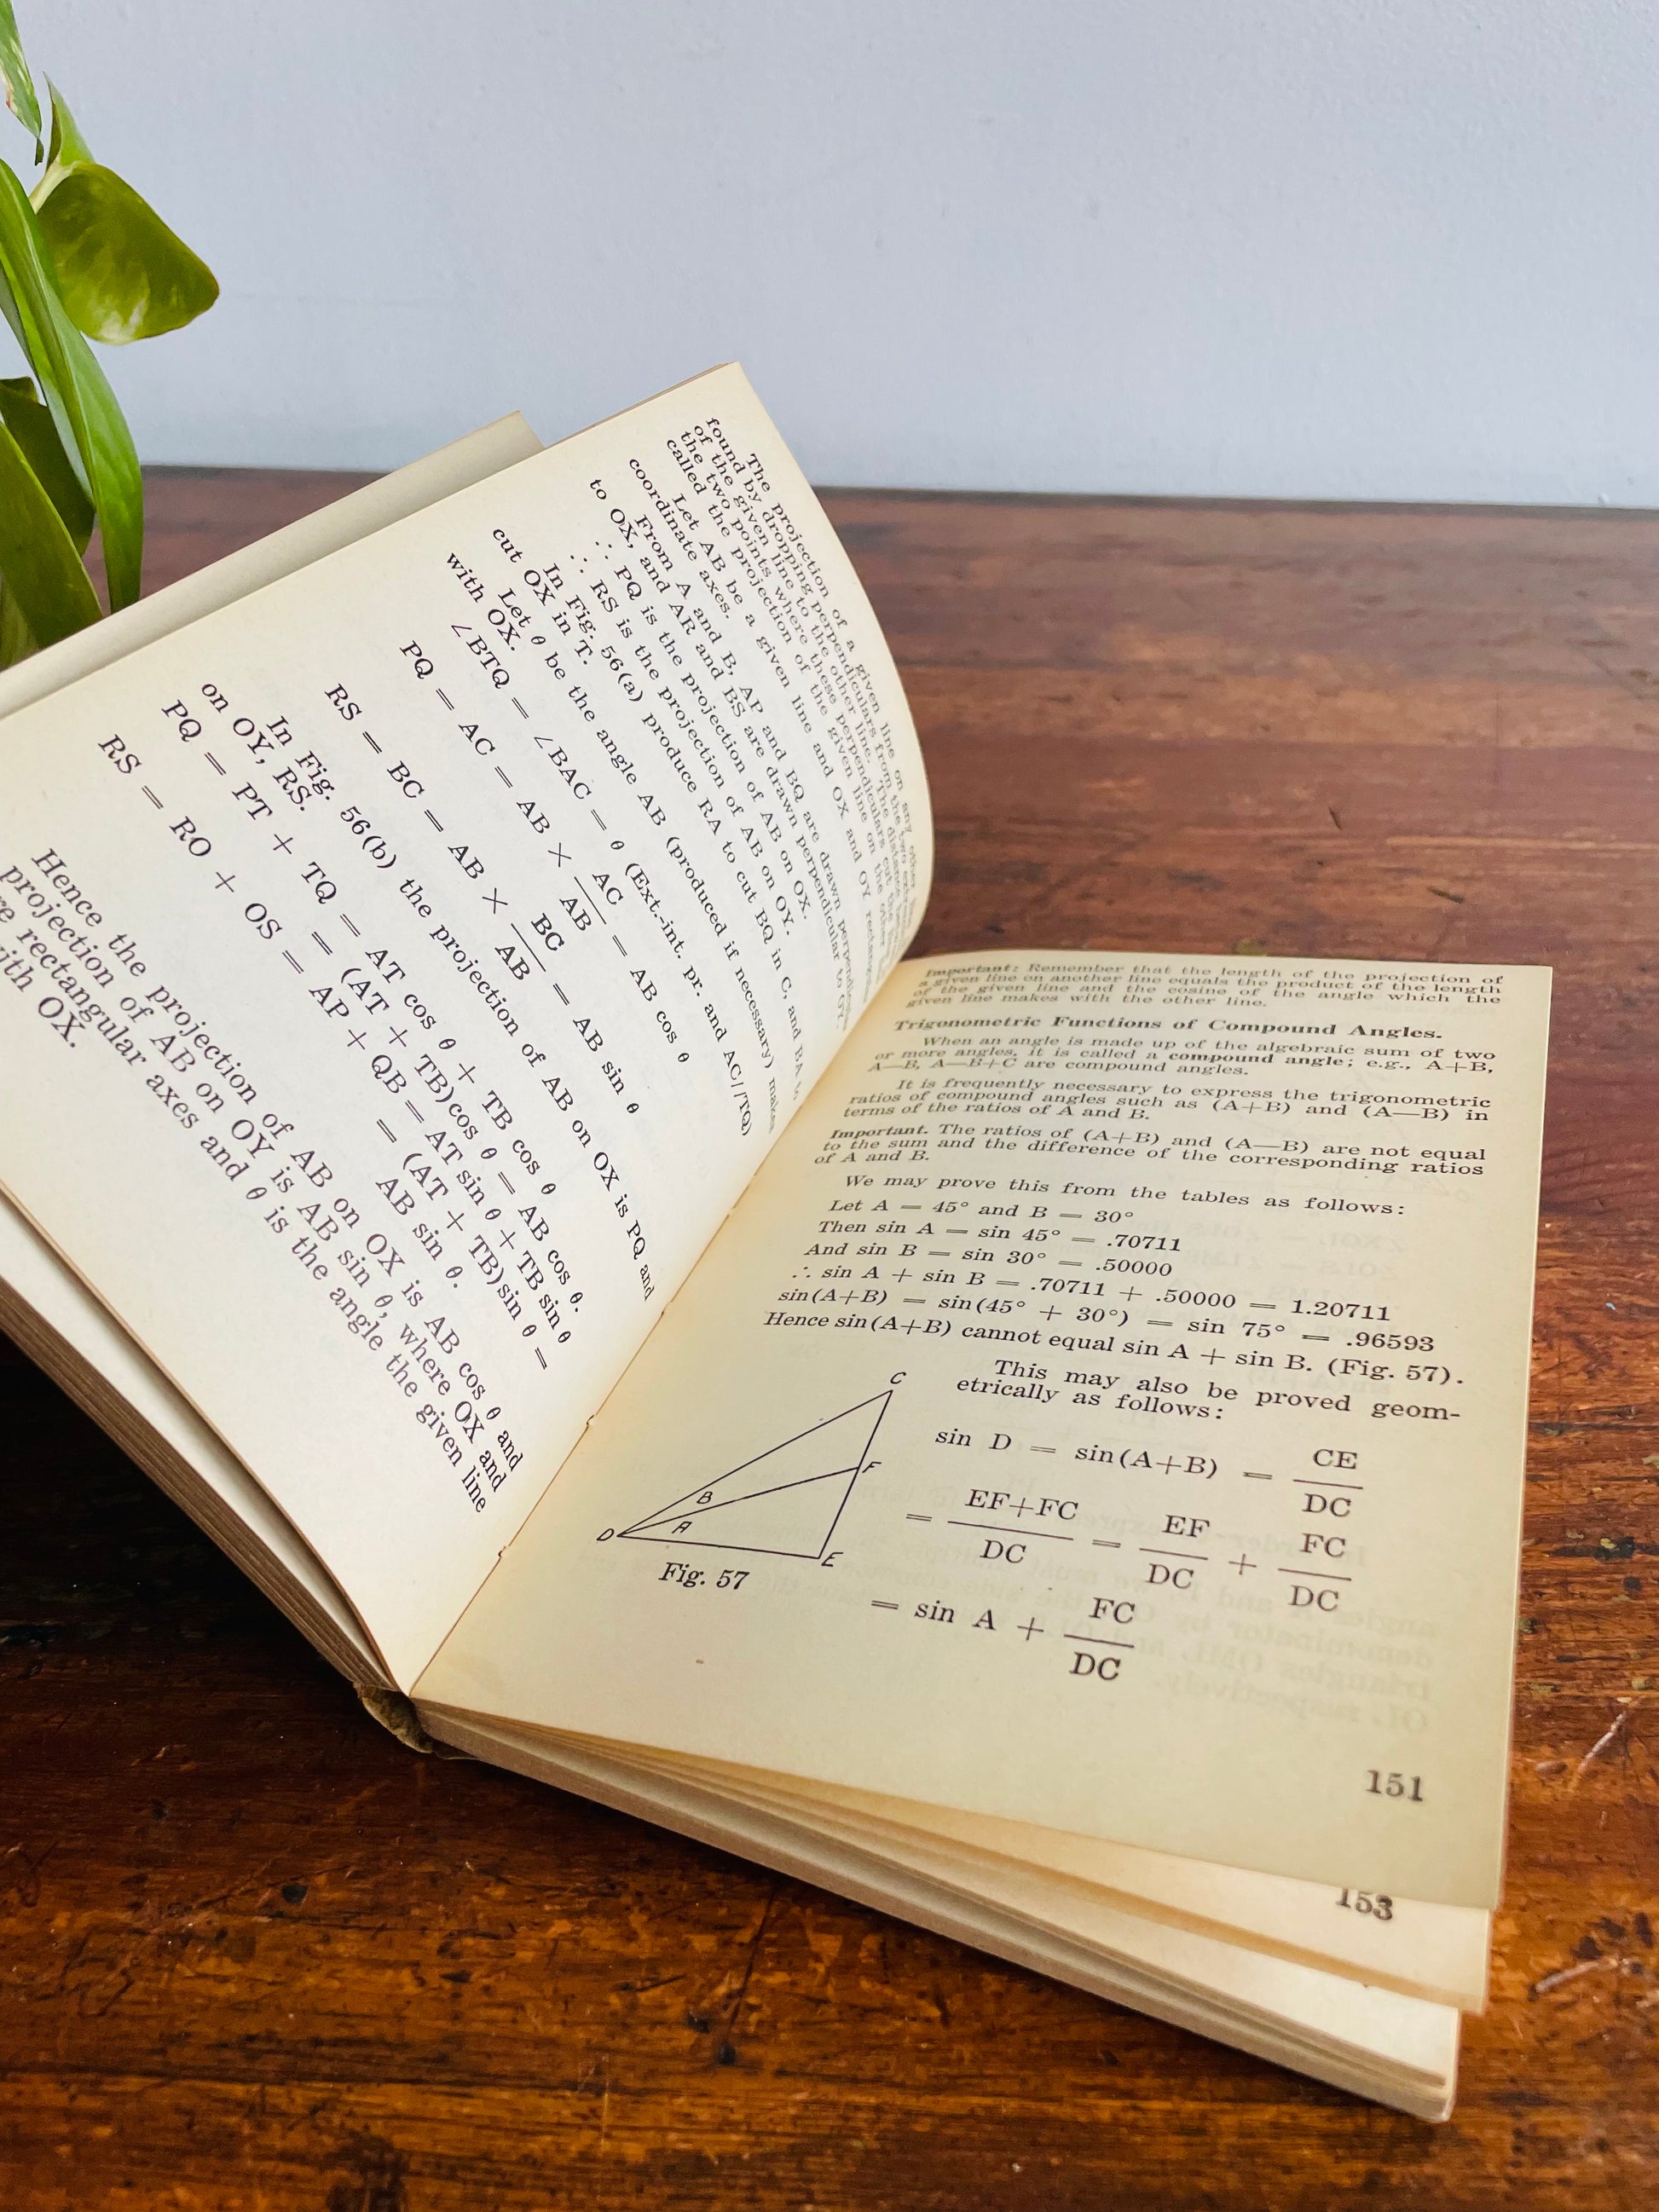 The projection of a given line on any other
found by dropping perpendiculars from the two
of the given line to the other line. The distance
the two points where these perpendiculars cut the
called the projection of the given line on the other
Let AB be a given line and OX and OY
coordinate axes.
From A and B, AP and BQ are drawn
to OX, and AR and BS are drawn perpendicular to OY.
∴ PQ is the projection of AB on OX.
∴ RS is the projection of AB on OY.
In Fig. 56(a) produce RA to cut BQ in C, and BA to
cut OX in T.
Let θ be the angle AB (produced if necessary) makes
with OX.
∠BTQ = ∠BAC = θ (Ext.-int. pr. and AC//TQ)
PQ = AC = AB × AC/AB = AB cos θ
RS = BC = AB × BC/AB = AB sin θ
In Fig. 56(b) the projection of AB on OX is PQ and
on OY, RS.
PQ = PT + TQ = AT cos θ + TB cos θ
= (AT + TB)cos θ = AB cos θ.
RS = RO + OS = AP + QB = AT sin θ + TB sin θ
= (AT + TB)sin θ =
AB sin θ.
Hence the projection of AB on OX is AB cos θ and
projection of AB on OY is AB sin θ, where OX and
rectangular axes and θ is the angle the given line
with OX.
Important: Remember that the length of the projection of
a given line on another line equals the product of the length
of the given line and the cosine of the angle which the
given line makes with the other line.
Trigonometric Functions of Compound Angles.
When an angle is made up of the algebraic sum of two
or more angles, it is called a compound angle; e.g., A+B,
A—B, A—B+C are compound angles.
It is frequently necessary to express the trigonometric
ratios of compound angles such as (A+B) and (A—B) in
terms of the ratios of A and B.
Important. The ratios of (A+B) and (A—B) are not equal
to the sum and the difference of the corresponding ratios
of A and B.
We may prove this from the tables as follows:
Let A = 45° and B = 30°
Then sin A = sin 45° = .70711
And sin B = sin 30° = .50000
∴ sin A + sin B = .70711 + .50000 = 1.20711
sin(A+B) = sin(45° + 30°) = sin 75° = .96593
Hence sin(A+B) cannot equal sin A + sin B. (Fig. 57).
This may also be proved geom-
etrically as follows:
sin D = sin(A+B) = CE/DC
= EF+FC/DC = EF/DC + FC/DC
= sin A + FC/DC
C
F
B
A
D
E
Fig. 57
151
153